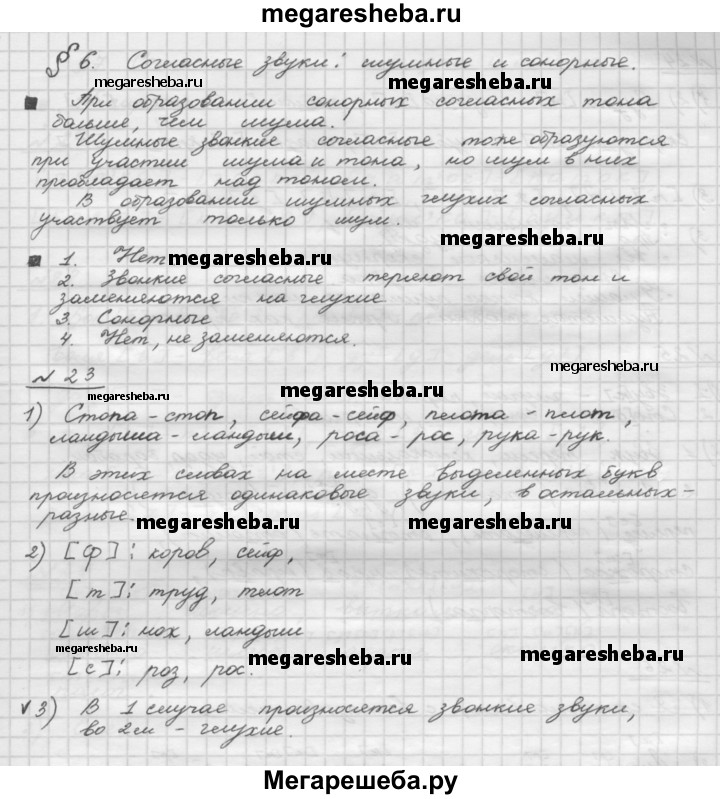 megaresheba.ru
§ 6. Согласные звуки: шумные и сонорные.
megaresheba.ru megaresheba.ru
При образовании сонорных согласных тона
больше, чем шума.
Шумные звонкие согласные тоже образуются
при участии шума и тона, но шум в них
преобладает над тоном.
В образовании шумных глухих согласных
участвует только шум.
megaresheba.ru
1. Нет
megaresheba.ru
2. Звонкие согласные теряют свой тон и
заменяются на глухие
3. Сонорные
4. Нет, не заменяются.
megaresheba.ru
№ 23
megaresheba.ru
1) Стопа - стоп, сейфа - сейф, плота - плот,
ландыша - ландыш, роса - рос, рука - рук.
В этих словах на месте выделенных букв
произносятся одинаковые звуки, в остальных -
разные.
megaresheba.ru megaresheba.ru
2) [ф]: коров, сейф,
[т]: труд, плот
[ш]: нох, ландыш
megaresheba.ru megaresheba.ru
[с]: роз, рос.
3) В 1 случае произносятся звонкие звуки,
во 2м - глухие.
Мегарешеба.ру